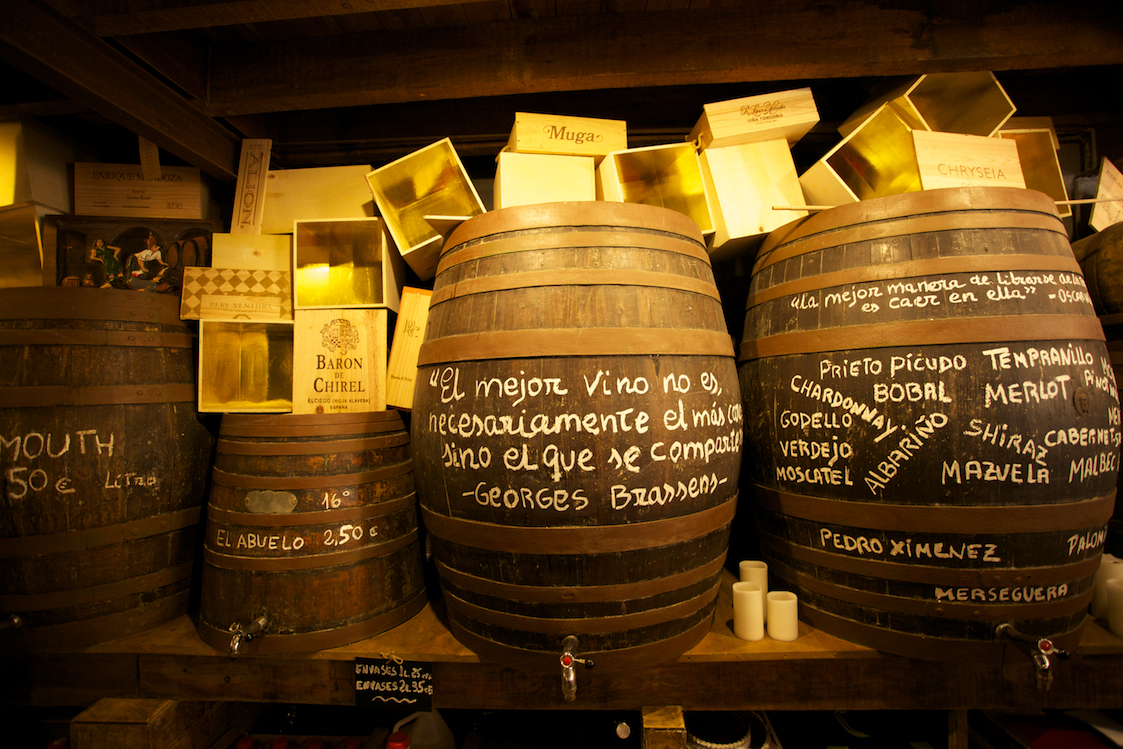 ENRIQUE MENDOZA
Muga
VIÑA TONDONIA
CHRYSEIA
PERE VENTURA
BARON
DE
CHIREL
ELCIEGO (RIOJA ALAVESA)
ESPAÑA
MOUTH
50 € Litro
16°
EL ABUELO 2,50 €
"El mejor vino no es,
necesariamente el más ca
sino el que se comparte
-GEORGES BRASSENS-
"La mejor manera de librarse de la
es caer en ella" -OSCA
PRIETO PICUDO
TEMPRANILLO
CHARDONNAY
BOBAL
MERLOT
PINO
GODELLO
ALBARIÑO
SHIRAZ
CABERNET-S
VERDEJO
MOSCATEL
MAZUELA
MALBEC
PEDRO XIMENEZ
PALOM
MERSEGUERA
ENVASES 1L 25
ENVASES 2L 35